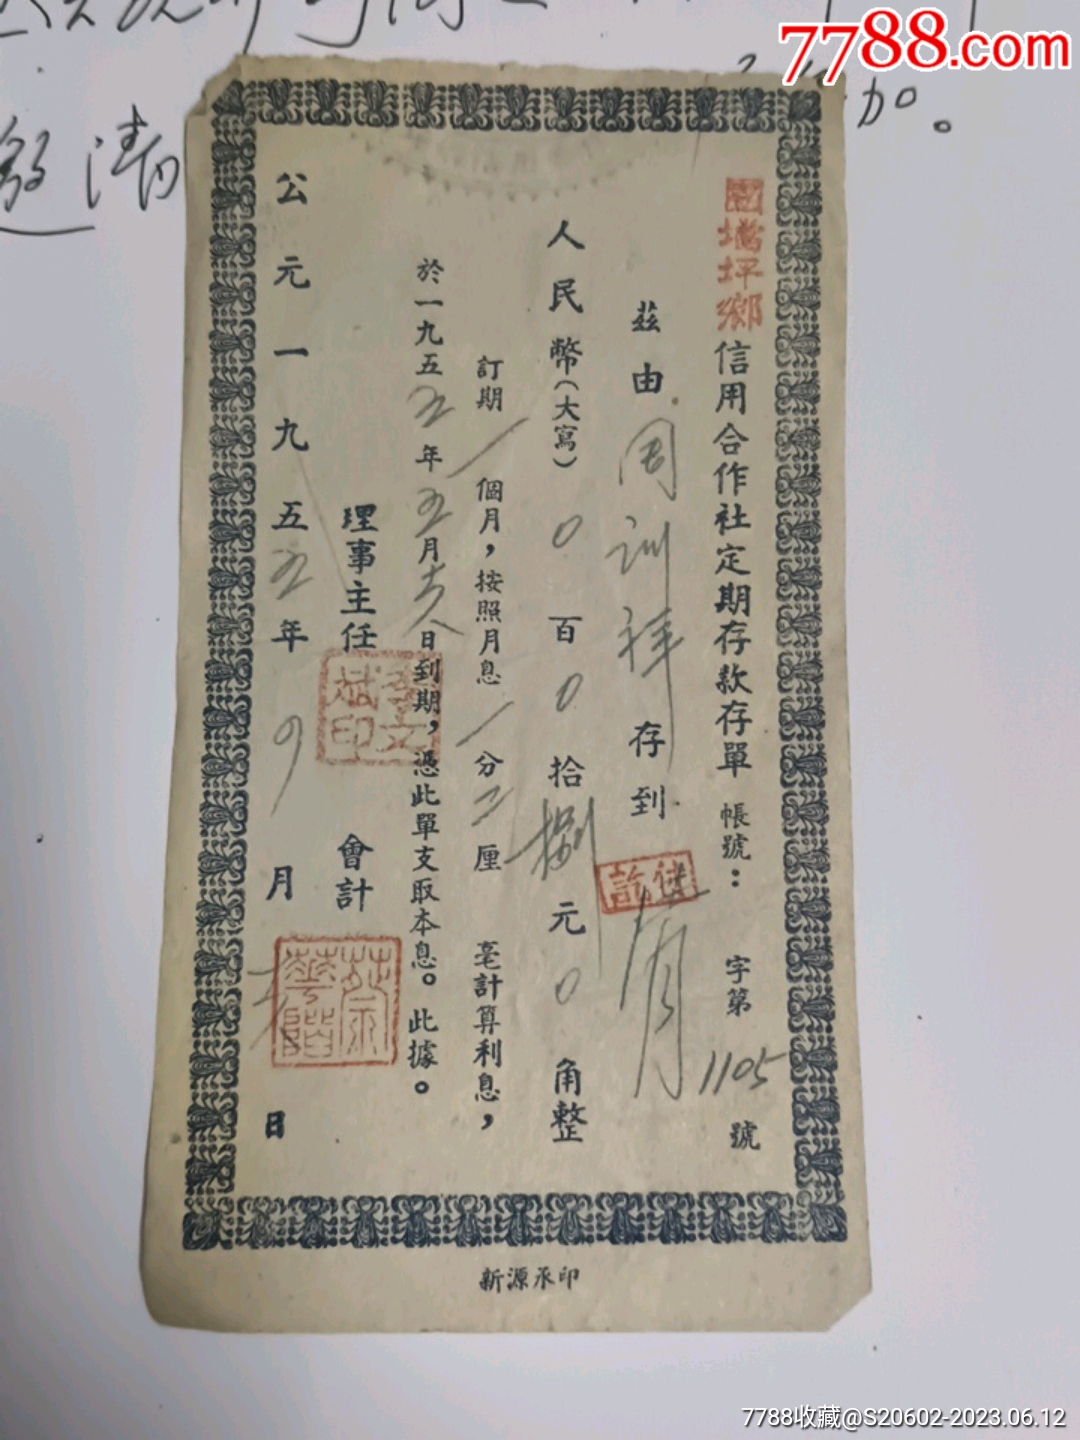 7788.com
加。
邀请
信用合作社定期存款存單 帳號： 字第1105號
茲由周训祥存到
人民幣(大寫)0百0拾捌元0角整
訂期一個月，按照月息一分二厘 毫計算利息，
於一九五五年五月 日到期，憑此單支取本息。此據。
理事主任 會計
李文斌印
公元一九五五年 月 日
新源承印
7788收藏@S20602-2023.06.12